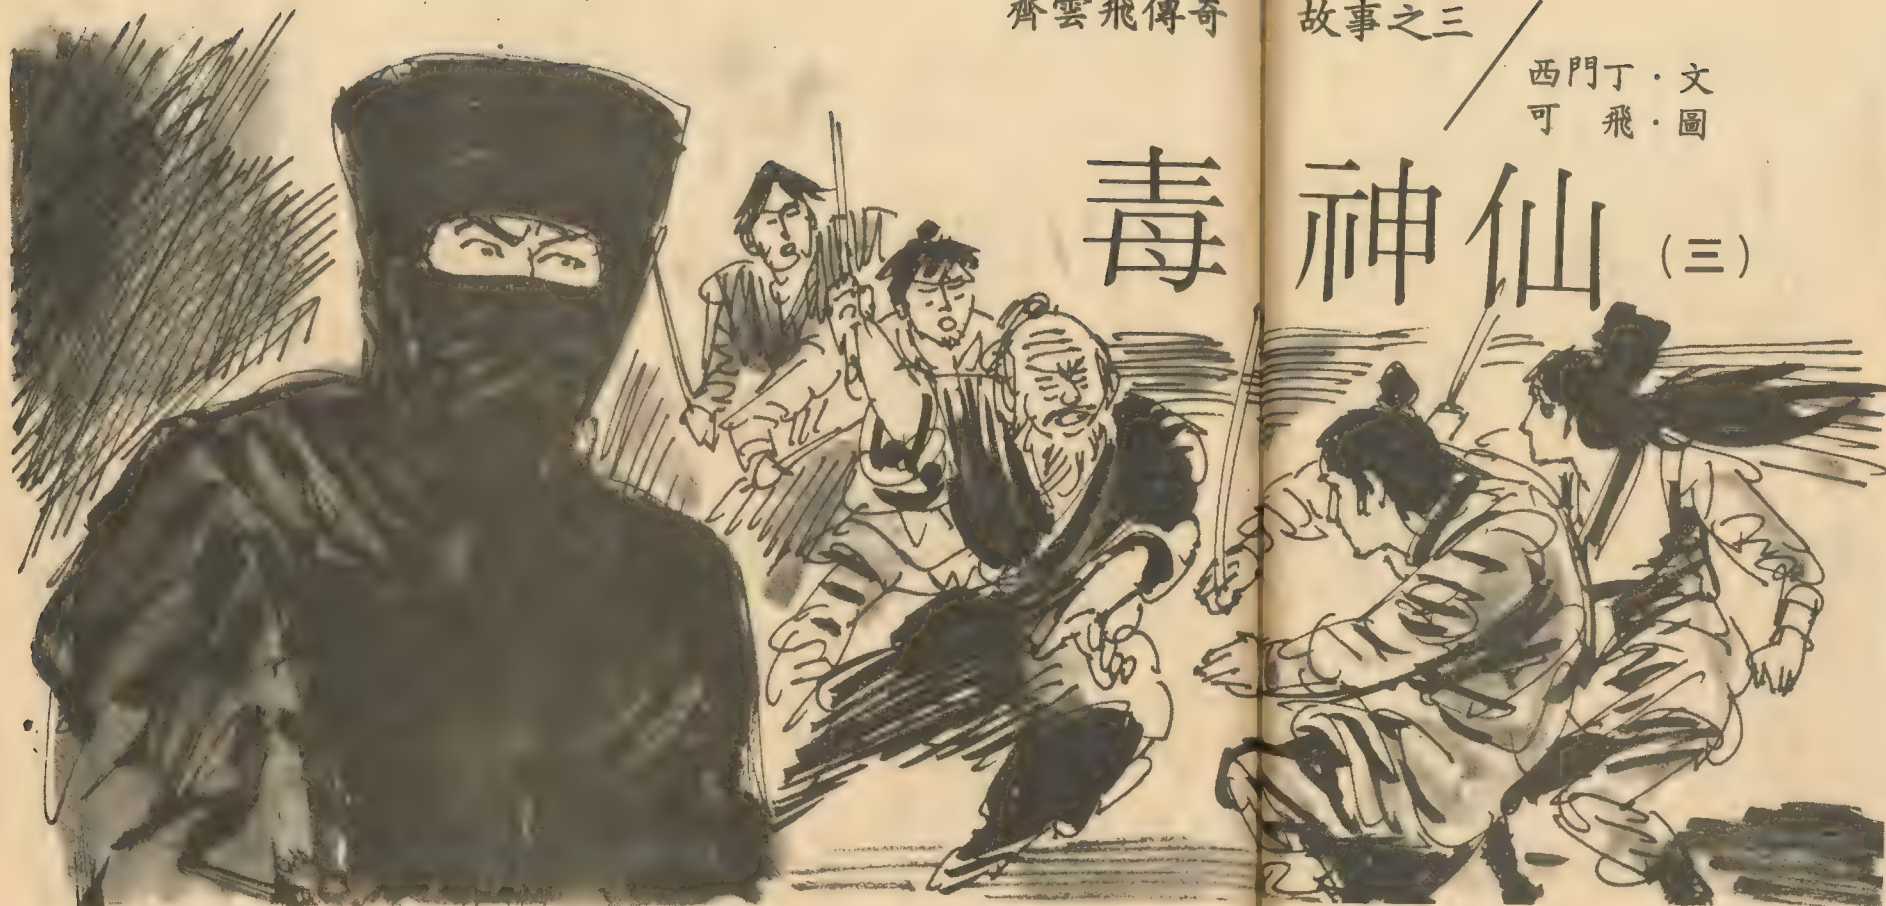 齊雲飛傳奇 故事之三
西門丁·文
可飛·圖
毒神仙(三)